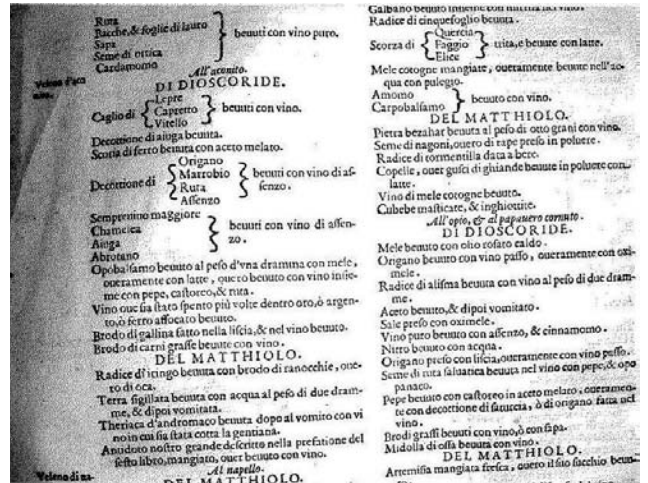 Ruta
Bacche, & foglie di lauro
Sapa
Seme di ortica
Cardamomo
beuuti con vino puro.
Veleno d'aco
nito.
All'aconito.
DI DIOSCORIDE.
Caglio di
Lepre
Capretto
Vitello
beuuti con vino.
Decottione di aiuga beuuta.
Scoria di ferro beuuta con aceto melato.
Decottione di
Origano
Marrobio
Ruta
Assenzo
beuuti con vino di as-
senzo.
Sempreuiuo maggiore
Chamelea
Aiuga
Abrotano
beuuti con vino di assen-
zo.
Opobalsamo beuuto al peso d'vna dramma con mele,
oueramente con latte, ouero beuuto con vino insie-
me con pepe, castoreo, & ruta.
Vino oue sia stato spento più volte dentro oro, ò argen-
to, ò ferro affocato beuuto.
Brodo di gallina fatto nella liscia, & nel vino beuuto.
Brodo di carni grasse beuute con vino.
DEL MATTHIOLO.
Radice di iringo beuuta con brodo di ranocchie, oue-
ro di oca.
Terra sigillata beuuta con acqua al peso di due dram-
me, & dipoi vomitata.
Theriaca d'andromaco beuuta dopo al vomito con vi
no in cui sia stata cotta la gentiana.
Antidoto nostro grande descritto nella prefatione del
sesto libro, mangiato, ouer beuuto con vino.
Al napello.
Veleno di na-
DEL MATTHIOLO.
Galbano beuuto insieme con mirrha nel vino.
Radice di cinquefoglio beuuta.
Scorza di
Quercia
Faggio
Elice
trita, e beuute con latte.
Mele cotogne mangiate, oueramente beuute nell'ac-
qua con pulegio.
Amomo
Carpobalsamo
beuuto con vino.
DEL MATTHIOLO.
Pietra bezahar beuuta al peso di otto grani con vino.
Seme di nagoni, ouero di rape preso in poluere.
Radice di tormentilla data a bere.
Copelle, ouer gusci di ghiande beuute in poluere con
latte.
Vino di mele cotogne beuuto.
Cubebe masticate, & inghiottite.
All'opio, & al papauero cornuto.
DI DIOSCORIDE.
Mele beuuto con olio rosato caldo.
Origano beuuto con vino passo, oueramente con oxi-
mele.
Radice di alisma beuuta con vino al peso di due dram-
me.
Aceto beuuto, & dipoi vomitato.
Sale preso con oximele.
Vino puro beuuto con assenzo, & cinnamomo.
Nitro beuuto con acqua.
Origano preso con liscia, oueramente con vino passo.
Seme di ruta saluatica beuuta nel vino con pepe, & opo
panaco.
Pepe beuuto con castoreo in aceto melato, oueramen-
te con decottione di satureia, ò di origano fatta nel
vino.
Brodi grassi beuuti con vino, ò con sapa.
Midolla di ossa beuuta con vino.
DEL MATTHIOLO.
Artemisia mangiata fresca, ouero il suo succhio beuu-